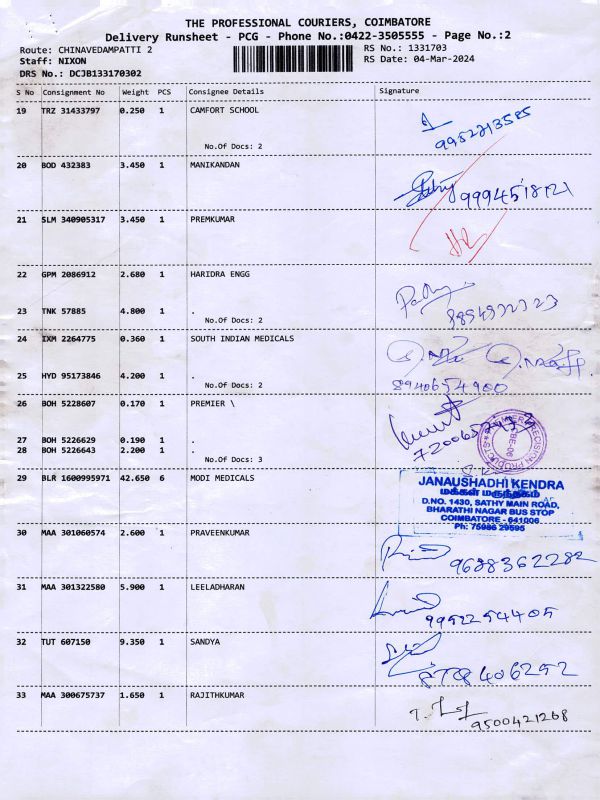 THE PROFESSIONAL COURIERS, COIMBATORE
Delivery Runsheet - PCG - Phone No.:0422-3505555 - Page No.:2
Route: CHINAVEDAMPATTI 2 RS No.: 1331703
Staff: NIXON RS Date: 04-Mar-2024
DRS No.: DCJB133170302
S No Consignment No Weight PCS Consignee Details Signature
19 TRZ 31433797 0.250 1 CAMFORT SCHOOL
9952213585
No.Of Docs: 2
20 BOD 432383 3.450 1 MANIKANDAN
21 SLM 340905317 3.450 1 PREMKUMAR
22 GPM 2086912 2.680 1 HARIDRA ENGG
23 TNK 57885 4.800 1 .
No.Of Docs: 2
24 IXM 2264775 0.360 1 SOUTH INDIAN MEDICALS
25 HYD 95173846 4.200 1 .
No.Of Docs: 2 8940654900
26 BOH 5228607 0.170 1 PREMIER \
27 BOH 5226629 0.190 1 .
28 BOH 5226643 2.200 1 .
No.Of Docs: 3
29 BLR 1600995971 42.650 6 MODI MEDICALS
JANAUSHADHI KENDRA
மக்கள் மருந்தகம்
D.NO. 1430, SATHY MAIN ROAD,
BHARATHI NAGAR BUS STOP
COIMBATORE - 641006
Ph: 75986 29595
30 MAA 301060574 2.600 1 PRAVEENKUMAR
9688362282
31 MAA 301322580 5.900 1 LEELADHARAN
9952254405
32 TUT 607150 9.350 1 SANDYA
33 MAA 300675737 1.650 1 RAJITHKUMAR
9500421268